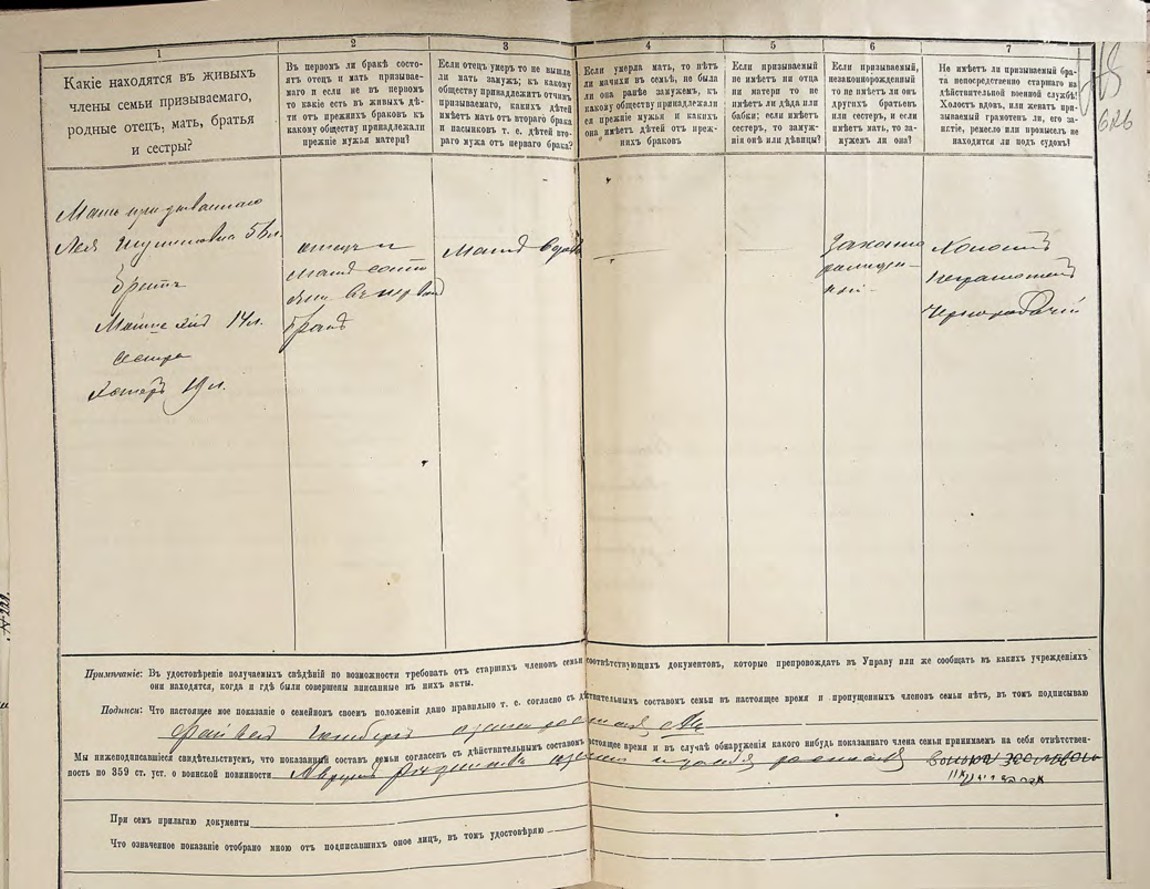 1
2
3
4
5
6
7
Какіе находятся въ живыхъ
члены семьи призываемаго,
родные отецъ, мать, братья
и сестры?
Въ первомъ ли бракѣ состо-
ятъ отецъ и мать призывае-
маго и если не въ первомъ
то какіе есть въ живыхъ дѣ-
ти отъ прежнихъ браковъ къ
какому обществу принадлежали
прежніе мужья матери?
Если отецъ умеръ то не вышла
ли мать замужъ; къ какому
обществу принадлежитъ отчимъ
призываемаго, какихъ дѣтей
имѣетъ мать отъ втораго брака
и пасынковъ т. е. дѣтей вто-
раго мужа отъ перваго брака?
Если умерла мать, то нѣтъ
ли мачихи въ семьѣ, не была
ли она ранѣе замужемъ, къ
какому обществу принадлежали
ея прежніе мужья и какихъ
она имѣетъ дѣтей отъ преж-
нихъ браковъ
Если призываемый
не имѣетъ ни отца
ни матери то не
имѣетъ ли дѣда или
бабки; если имѣетъ
сестеръ, то замуж-
нія онѣ или дѣвицы?
Если призываемый,
незаконнорожденный
то не имѣетъ ли онъ
другихъ братьевъ
или сестеръ, и если
имѣетъ мать, то за-
мужемъ ли она?
Не имѣетъ ли призываемый бра-
та непосредственно старшаго на
дѣйствительной военной службѣ?
Холостъ вдовъ, или женатъ при-
зываемый грамотенъ ли, его за-
нятіе, ремесло или промыселъ не
находится ли подъ судомъ?
Мать призываемаго
Лея 56 л.
братъ
14 л.
сестра
Эстеръ 19 л.
отецъ и
мать состо
яли въ первомъ
бракѣ
Мать вдова
Законно
рожден-
ный
Холостъ
Неграмотенъ
Чернорабочій
Примѣчаніе: Въ удостовѣреніе получаемыхъ свѣдѣній по возможности требовать отъ старшихъ членовъ семьи соотвѣтствующихъ документовъ, которые препровождать въ Управу или же сообщать въ какихъ учрежденіяхъ
они находятся, когда и гдѣ были совершены вписанные въ нихъ акты.
Подписи: Что настоящее мое показаніе о семейномъ своемъ положеніи дано правильно т. е. согласно съ дѣйствительнымъ составомъ семьи въ настоящее время и пропущенныхъ членовъ семьи нѣтъ, въ томъ подписываю
Мы нижеподписавшіеся свидѣтельствуемъ, что показанный составъ семьи согласенъ съ дѣйствительнымъ составомъ настоящее время и въ случаѣ обнаруженія какого нибудь показаннаго члена семьи принимаемъ на себя отвѣтствен-
ность по 359 ст. уст. о воинской повинности
При семъ прилагаю документы
Что означенное показаніе отобрано мною отъ подписавшихъ оное лицъ, въ томъ удостовѣряю